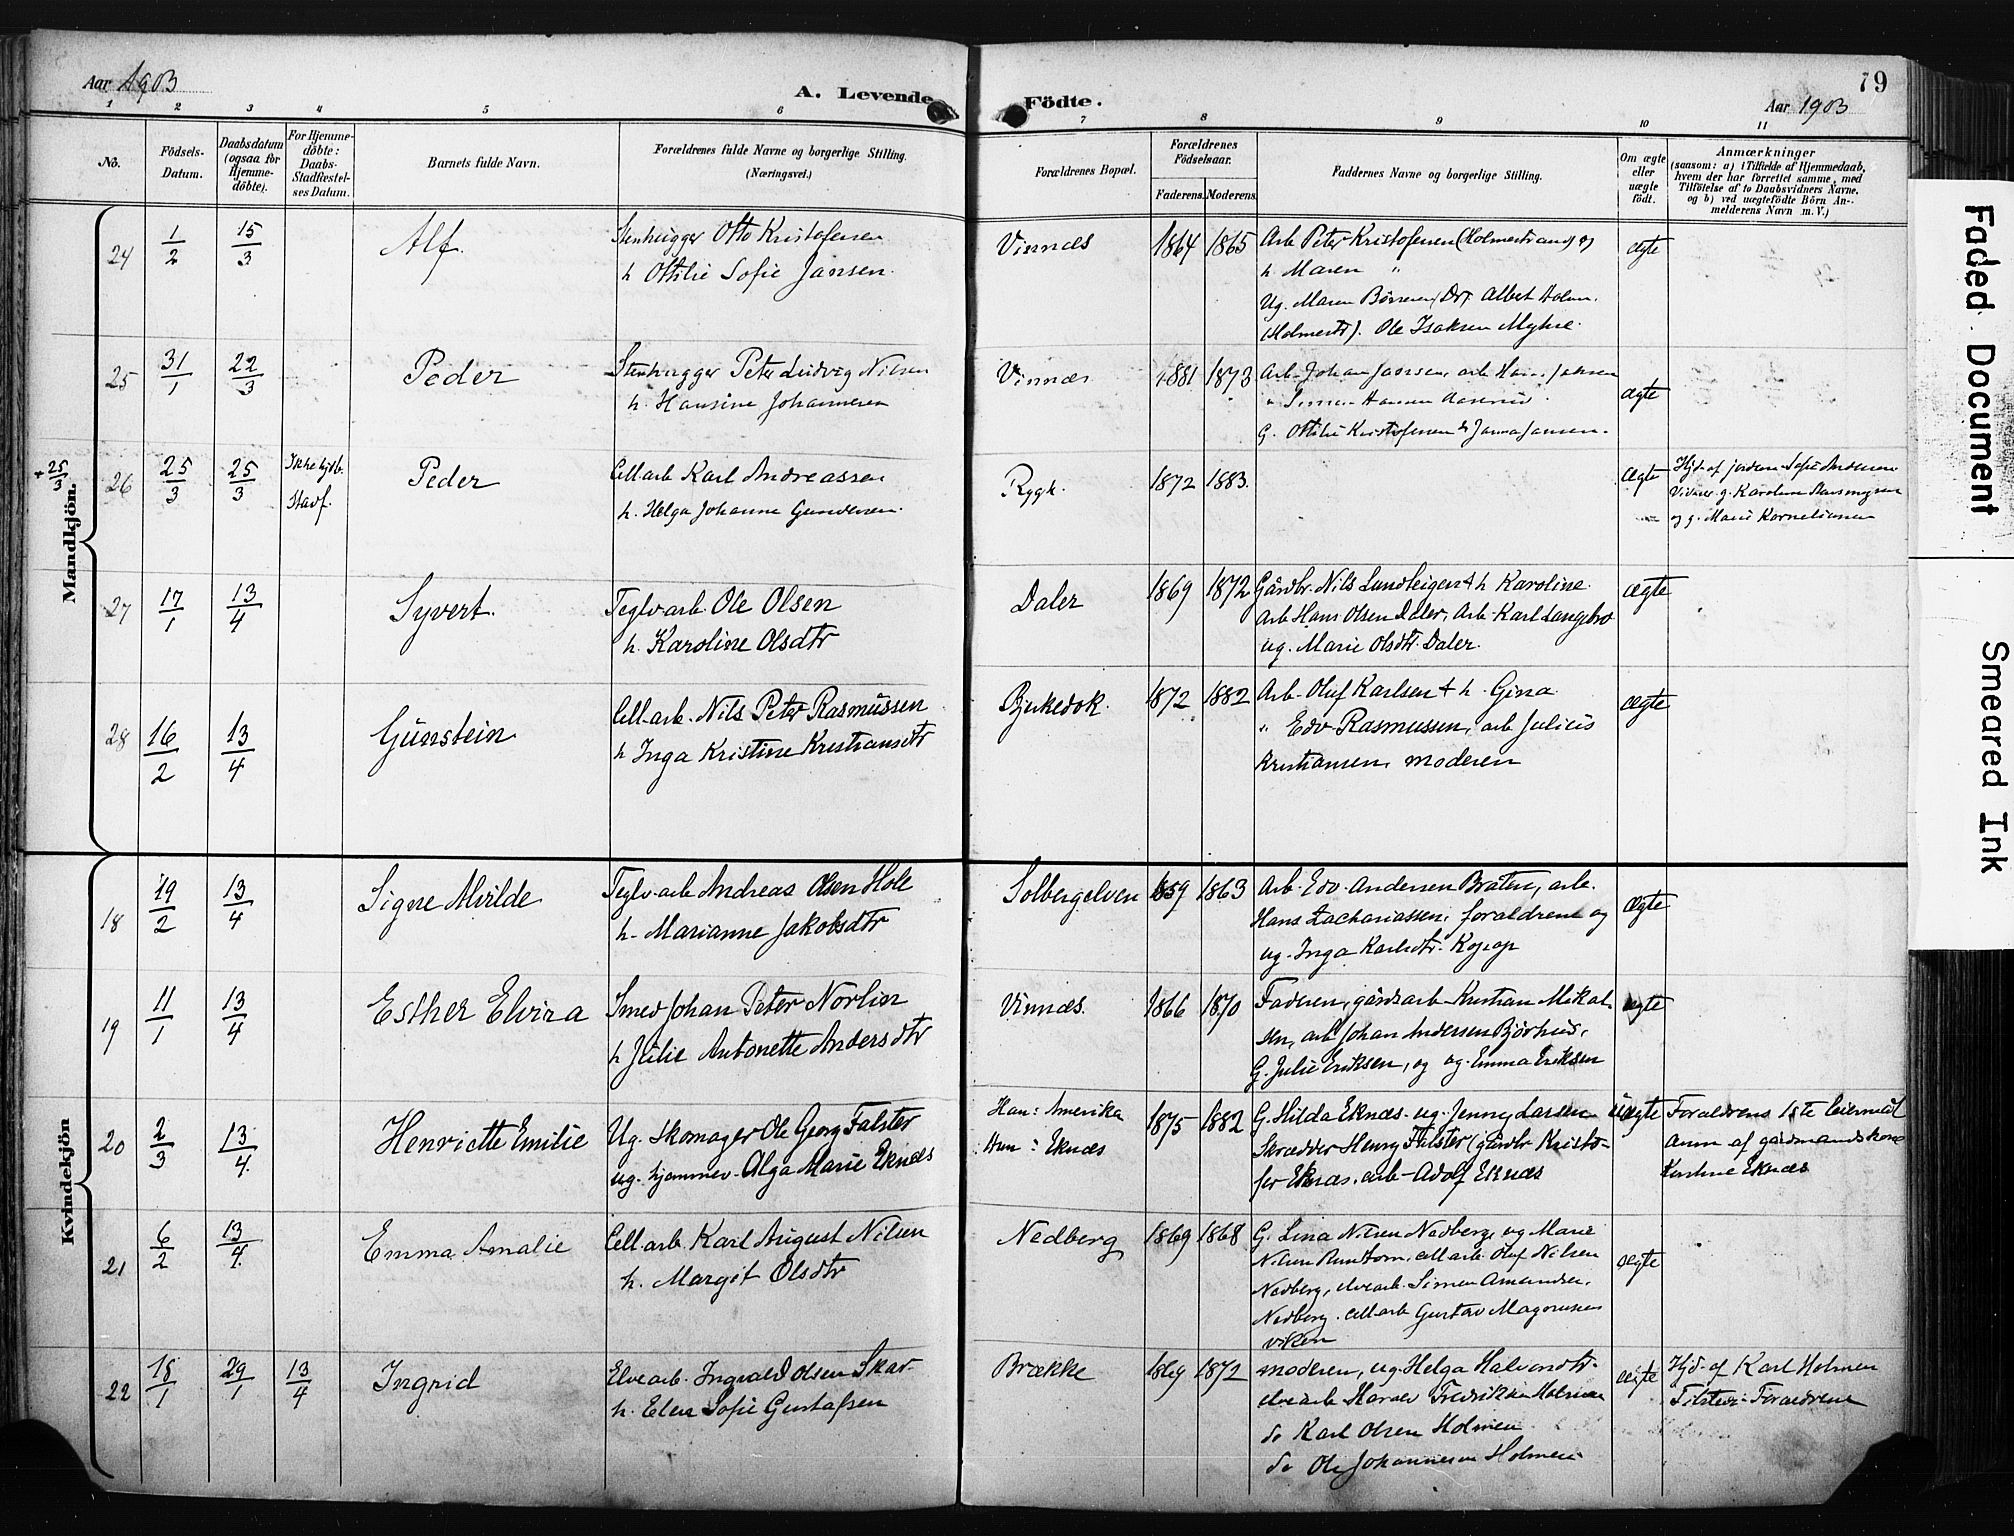 Aar 1903
A. Levende Födte.
79
Aar 1903
1 2 3 4 5 6 7 8 9 10 11
No.
Födsels-Datum.
Daabsdatum (ogsaa for Hjemme-döbte).
For Hjemme-döbte: Daabs-Stadfæstel-ses Datum.
Barnets fulde Navn.
Forældrenes fulde Navne og borgerlige Stilling.
(Næringsvei.)
Forældrenes Bopæl.
Forældrenes Födselsaar.
Faderens. Moderens.
Faddernes Navne og borgerlige Stilling.
Om ægte eller uægte födt.
Anmærkninger
(saasom: a) i Tilfælde af Hjemmedaab,
hvem der har forrettet samme, med
Tilföielse af to Daabsvidners Navne,
og b) ved uægtefödte Börn An-
melderens Navn m. V.)
Mandkjön.
24 1/2 15/3 Alf. Stenhugger Otto Kristofersen
h. Ottilie Sofie Jansen.
Vinnæs 1864 1865 Arb. Peter Kristofersen (Holmestrand) og
h Maren "
Ug. Maren Albert
(Holmestr). Ole Isaksen Myhre.
ægte
25 31/1 22/3 Peder Stenhugger Peter Ludvig Nilsen
h. Hansine Johannesen
Vinnæs 1881 1873 Arb. Johan Jansen, arb.
G. Ottilie Kristofersen & Janna Jansen.
ægte
+ 25/3
26 25/3 25/3 Ikke kjdb. Stadf. Peder Cell.arb Karl Andreassen
h. Helga Johanne Gundersen.
Rygh. 1872 1883.
ægte Hjd. af jordm. Sofie Andersen
Vidner g. Karoline
og g. Marie Korneliussen
27 17/1 13/4 Syvert. Teglv.arb. Ole Olsen
h. Karoline Olsdtr
Daler 1869 1872 Gårdbr. Nils Lundteigen + h Karoline
Arb Hans Olsen Daler, Arb. Karl Langebro
ug. Marie Olsdtr. Daler.
ægte
28 16/2 13/4 Gunstein Cell.arb. Nils Peter Rasmussen
h Inga Kristine Kristiansdtr
Bjerkedok. 1872 1882 Arb. Oluf Karlsen + h. Gina
" Edv. Rasmussen, arb Julius
Kristiansen, moderen
ægte
Kvindekjön
18 19/2 13/4 Signe Alvilde Teglv.arb Andreas Olsen Hole
h. Marianne Jakobsdtr
Solbergelven 1859 1863 Arb. Edv. Andersen Braten, arb.
Hans Zachariassen, forældrene og
ug. Inga Karlsdtr. Kopop
ægte
19 11/1 13/4 Esther Elvira Smed Johan Peter Norlin
h Julie Antonette Andersdtr
Vinnæs. 1866 1870 Faderen, gårdsarb Kristian Mikal-
sen, arb Johan Andersen Bjørhus,
G. Julie Eriksen, og ug. Emma Eriksen
ægte
20 2/3 13/4. Henriette Emilie Ug. Skomager Ole Georg Falster
ug. hjemmev. Alga Marie Eknæs
Han: Amerika
Hun: Eknæs
1875 1882 G. Hilda Eknæs. ug. Jenny Larsen
Skrædder Henry Falster, gårdbr Kristo-
fer Eknæs. arb. Adolf Eknæs
uægte Forældrenes 1ste leiermål
anm af gårdmandskone
Kirstine Eknæs
21 6/2 13/4. Emma Amalie Cell.arb. Karl August Nilsen
h. Margit Olsdtr
Nedberg 1869 1868 G. Lina Nilsen Nedberg, ug Marie
Nilsen cell.arb. Oluf Nilsen
Nedberg, elvearb. Simen Amundsen,
Nedberg. cell.arb Gustav Magnussen
Viken
ægte
22 18/1 29/1 13/4 Ingrid Elvearb. Ingvald Olsen Skar
h. Elen Sofie Gustafsen
Brække 1869 1872 moderen, ug Helga Halvorsdtr.
elvearb Harald Fredrikken Holmen
do Karl Olsen Holmen
do Ole Johannesen Holmen
ægte Hjd. af Karl Holmen
Tilstede: Forældrene
Faded Document
Smeared Ink